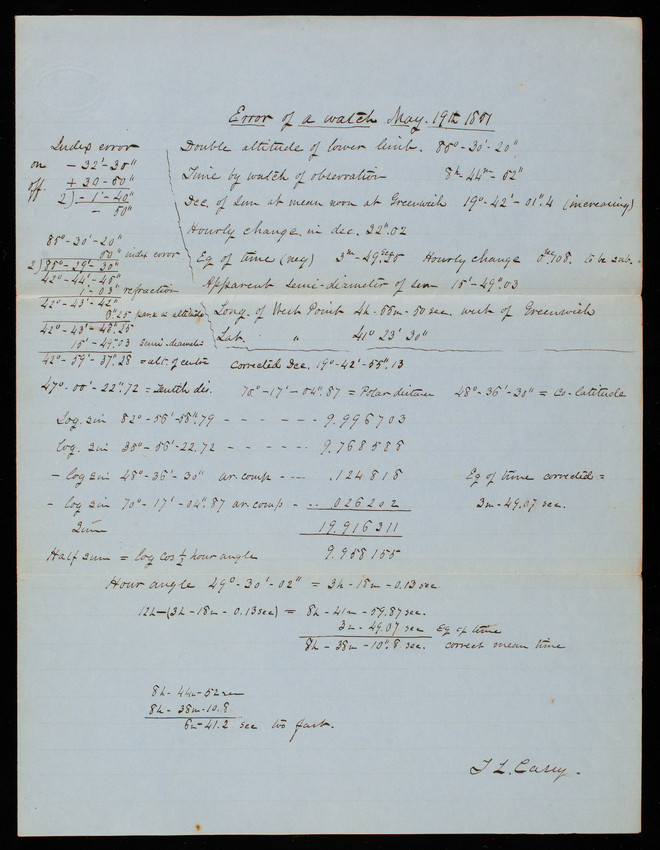 Error of a watch May. 19th 1851
Index error
on - 32'-30"
off. + 30-50"
2) - 1'-40"
- 50"
Double altitude of lower limb. 85°-30'-20"
Time by watch of observation 8h-44m-52"
Dec. of Sun at mean noon at Greenwich 19°-42'-01".4 (increasing)
Hourly change in dec. 32".02
Eq of time (neg) 3m-49 Hourly change 0".708. to be sub.
Apparent semi-diameter of sun 15'-49".03
Long. of West Point 4h-55m-50sec. west of Greenwich
Lat. " 41° 23' 30"
85°-30'-20"
50" index error
2) 85°-29'-30"
42°-44'-45"
1'-03" refraction
42°-43'-42"
6".25 parx in altitude
42°-43'-48".25
15'-49".03 semi-diameter
42°-59'-37".28 = alt. of centre corrected Dec. 19°-42'-55".13
47°-00'-22".72 = Zenith dis. 70°-17'-04".87 = Polar distance 48°-36'-30" = Co-latitude
Log. sin 82°-56'-58".79 - - - - - - - 9.996703
log. sin 35°-56'-22.72 - - - - - 9.768588
- log sin 48°-36'-30" ar. comp - - - .124818
- log sin 70°-17'-04".87 ar. comp - .. 026202
Sum 19.916311
Half sum = log cos ½ hour angle 9.958155
Eq of time corrected =
3m-49.07 sec.
Hour angle 49°-30'-02" = 3h-18m-0.13sec.
12h-(3h-18m-0.13sec) = 8h-41m-59.87sec.
3m-49.07 sec Eq of time
8h-38m-10".8 sec. correct mean time
8h-44m-52sec
8h-38m-10.8
6m-41.2 sec too fast.
T L. Casey.